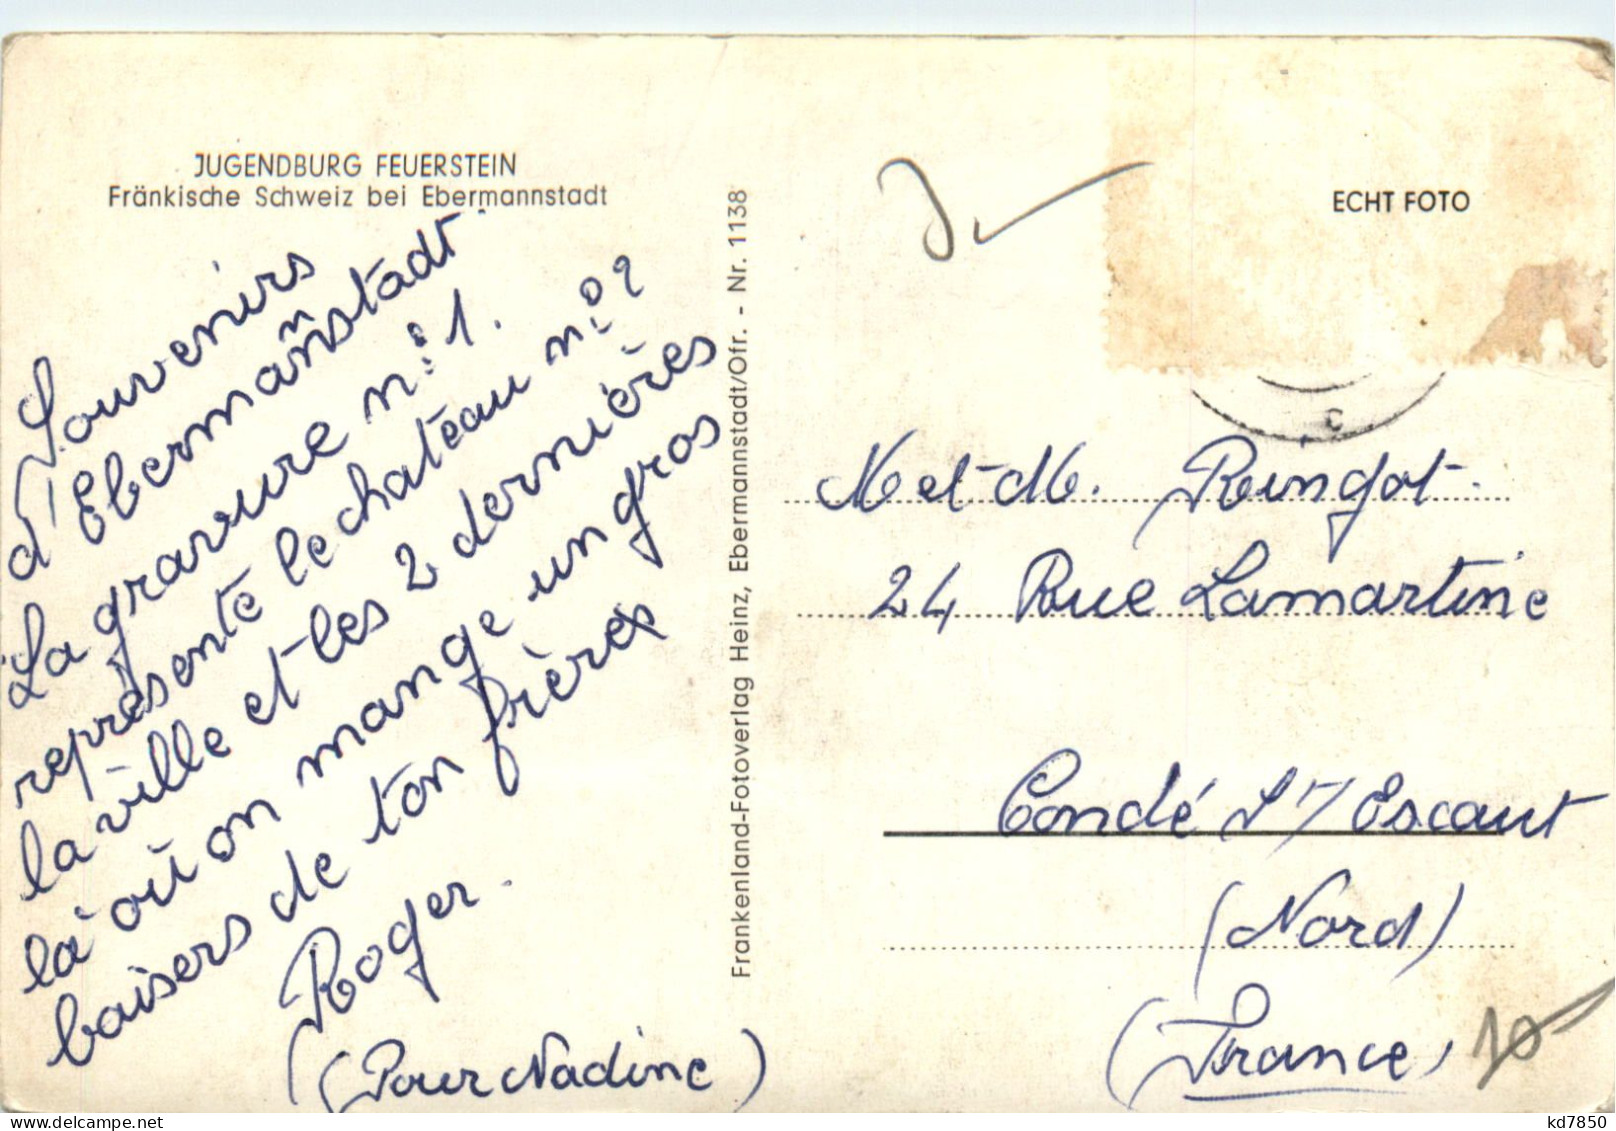 JUGENDBURG FEUERSTEIN
Fränkische Schweiz bei Ebermannstadt
Souvenirs
d'Ebermannstadt.
La gravure n: 1.
représente le chateau n:° 2
la ville et les 2 dernières
là où on mange un gros
baisers de ton frère
Roger.
(Pour Nadine)
Frankenland-Fotoverlag Heinz, Ebermannstadt/Ofr. - Nr. 1138
ECHT FOTO
M et M. Ringot.
24 Rue Lamartine
Condé s/ Escaut
(Nord)
(France)
10
kd7850